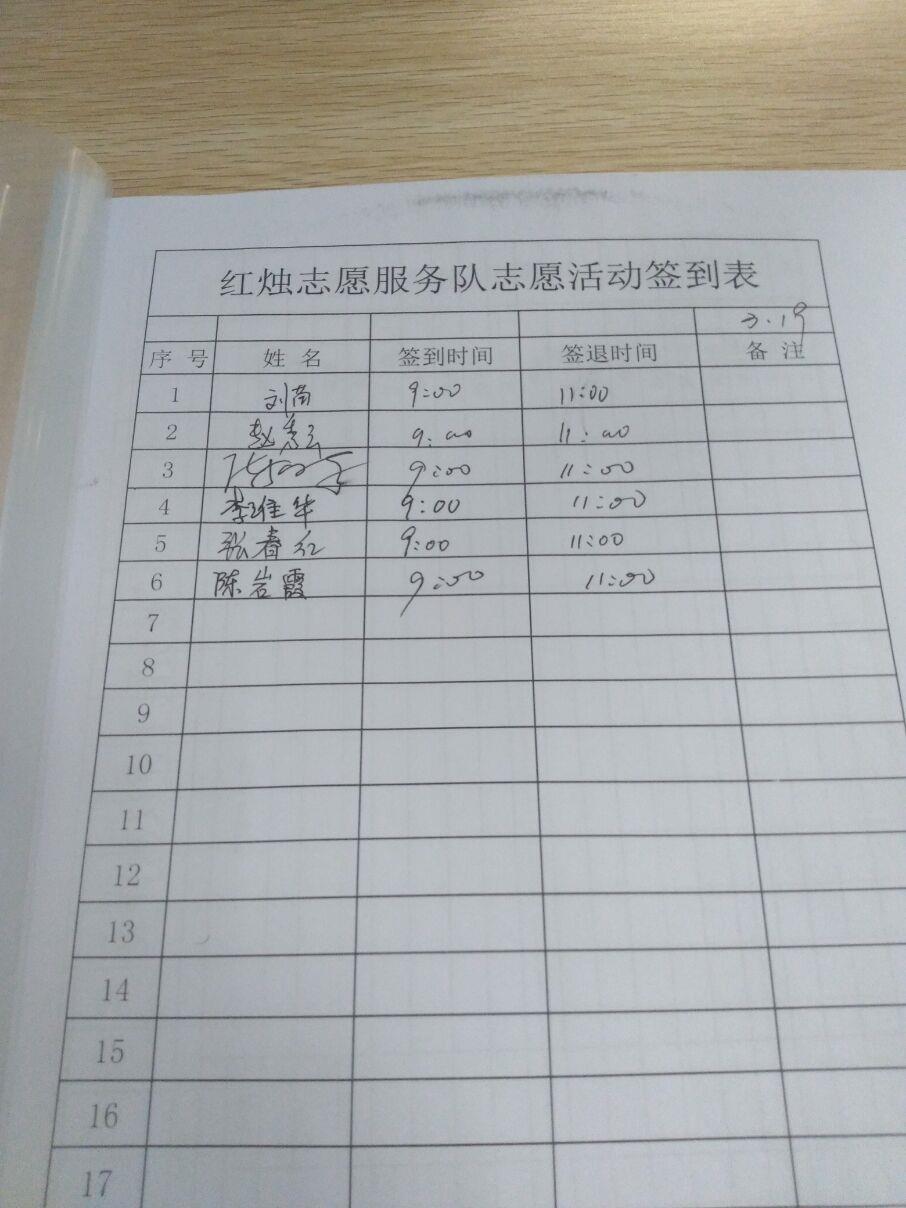 红烛志愿服务队志愿活动签到表
3.19
序号 姓名 签到时间 签退时间 备注
1 刘 9:00 11:00
2 赵 9:00 11:00
3 9:00 11:00
4 李维华 9:00 11:00
5 张春红 9:00 11:00
6 陈岩霞 9:00 11:00
7
8
9
10
11
12
13
14
15
16
17